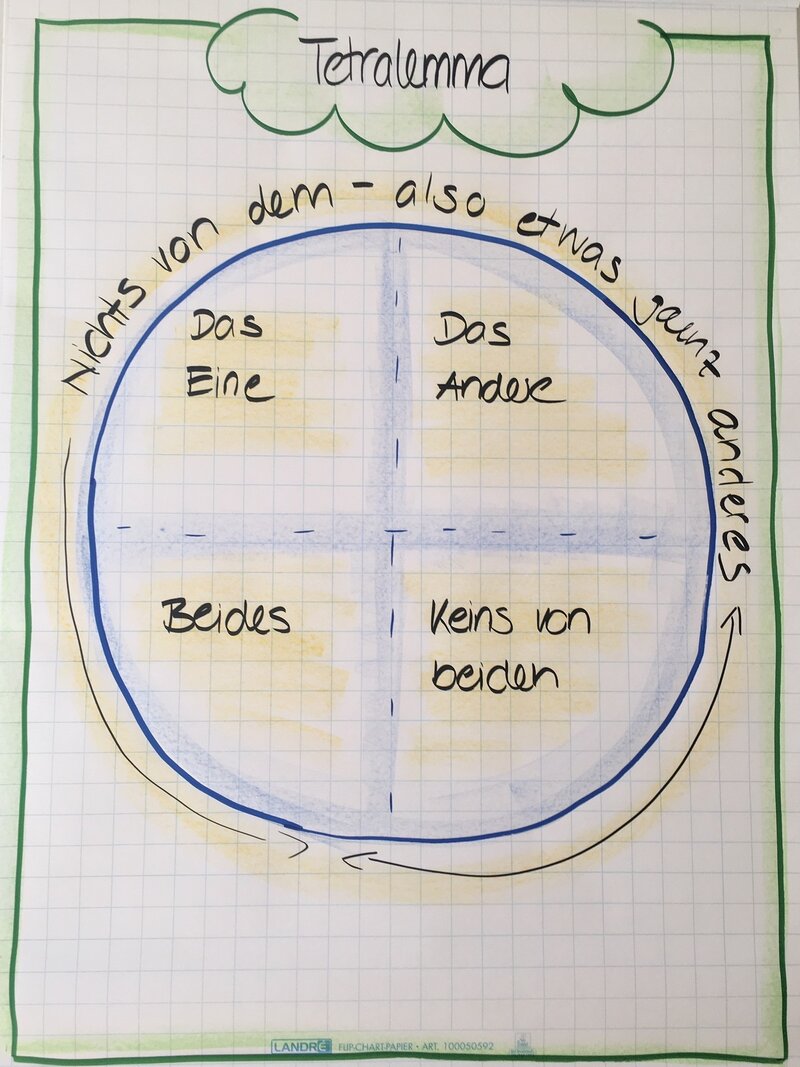 Tetralemma
Nichts von dem - also etwas ganz anderes
Das
Eine
Das
Andere
Beides
Keins von
beiden
LANDRÉ FLIP-CHART-PAPIER • ART. 100050592